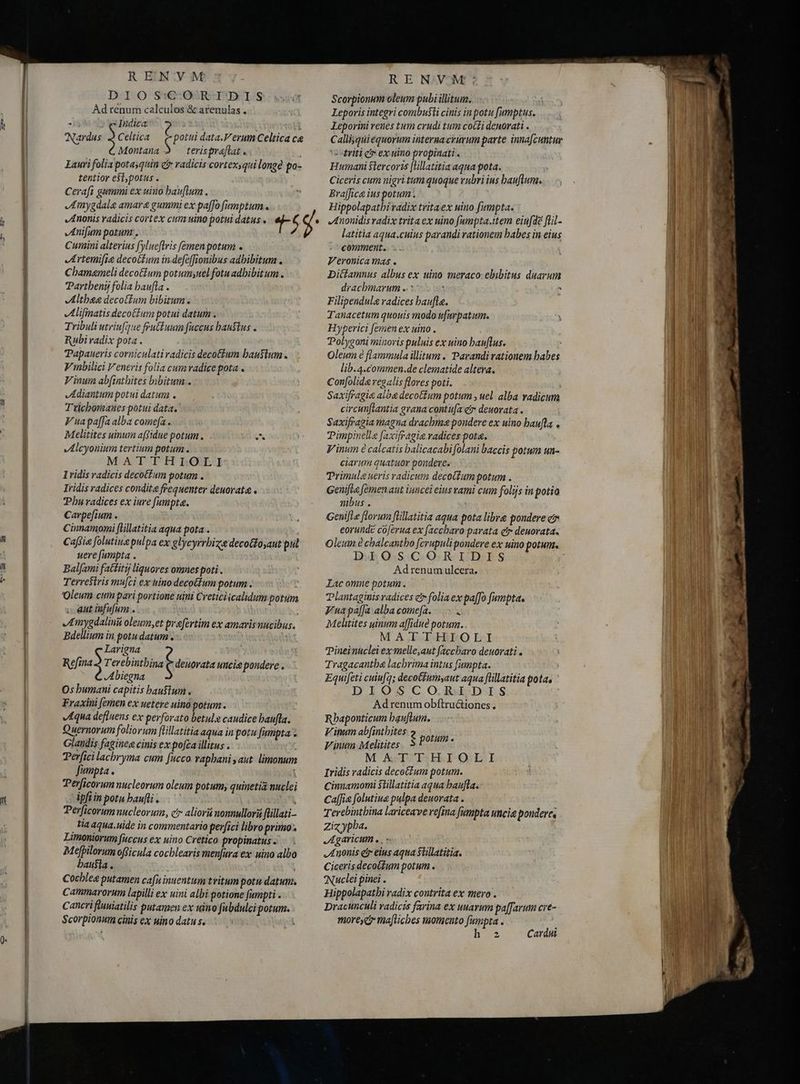 RENVM
DIOSCORIDIS
Ad renum calculos & arenulas.
Indica
Nardus Celtica potui data. Verum Celtica ca
Montana teris præstat.
Lauri folia pota, quin & radicis cortex, qui longè po-
tentior est, potus.
Cerasi gummi ex uino haustum.
Amygdalæ amaræ gummi ex passo sumptum.
Anonis radicis cortex cum uino potui datus.
Anisum potum.
Cumini alterius syluestris semen potum.
Artemisiæ decoctum in desessionibus adhibitum.
Chamæmeli decoctum potum, uel fotu adhibitum.
Parthenij folia hausta.
Altheæ decoctum bibitum.
Alismatis decoctum potui datum.
Tribuli utriusque fructuum succus haustus.
Rubi radix pota.
Papaueris corniculati radicis decoctum haustum.
Vmbilici Veneris folia cum radice pota.
Vinum absinthites bibitum.
Adiantum potui datum.
Trichomanes potui data.
Vua passa alba comesa.
Melitites uinum assidue potum.
Alcyonium tertium potum.
MATTHIOLI
Iridis radicis decoctum potum.
Iridis radices conditæ frequenter deuoratæ.
Phu radices ex iure sumptæ.
Carpesium.
Cinnamomi stillatitia aqua pota.
Cassiæ solutiuæ pulpa ex glycyrrhizæ decocto, aut pul
uere sumpta.
Balsami factitij liquores omnes poti.
Terrestris musci ex uino decoctum potum.
Oleum cum pari portione uini Cretici calidum potum
aut infusum.
Amygdalinū oleum, et præsertim ex amaris nucibus.
Bdellium in potu datum.
Larigna
Resina Terebinthina deuorata unciæ pondere.
Abiegna
Os humani capitis haustum.
Fraxini semen ex uetere uino potum.
Aqua defluens ex perforato betulæ caudice hausta.
Quernorum foliorum stillatitia aqua in potu sumpta.
Glandis fagineæ cinis ex posca illitus.
Persici lachryma cum succo raphani, aut limonum
sumpta.
Persicorum nucleorum oleum potum, quinetiā nuclei
ipsi in potu hausti.
Persicorum nucleorum, & aliorū nonnullorū stillati-
tia aqua. uide in commentario persici libro primo.
Limoniorum succus ex uino Cretico propinatus.
Mespilorum officula cochlearis mensura ex uino albo
hausta.
Cochleæ putamen casu inuentum tritum potu datum.
Cammarorum lapilli ex uini albi potione sumpti.
Cancri fluuiatilis putamen ex uino subdulci potum.
Scorpionum cinis ex uino datus.
RENVM
Scorpionum oleum pubi illitum.
Leporis integri combusti cinis in potu sumptus.
Leporini renes tum crudi tum cocti deuorati.
Calli, qui equorum interna crurum parte innascuntur
triti & ex uino propinati.
Humani stercoris stillatitia aqua pota.
Ciceris cum nigri tum quoque rubri ius haustum.
Brassicæ ius potum.
Hippolapathi radix trita ex uino sumpta.
Anonidis radix trita ex uino sumpta. item eiusdē stil-
latitia aqua. cuius parandi rationem habes in eius
comment.
Veronica mas.
Dictamnus albus ex uino meraco ebibitus duarum
drachmarum.
Filipendulæ radices haustæ.
Tanacetum quouis modo usurpatum.
Hyperici semen ex uino.
Polygoni minoris puluis ex uino haustus.
Oleum è flammula illitum. Parandi rationem habes
lib. 4. commen. de clematide altera.
Consolidæ regalis flores poti.
Saxifragiæ albæ decoctum potum, uel alba radicum
circunstantia grana contusa & deuorata.
Saxifragia magna drachmæ pondere ex uino hausta.
Pimpinellæ saxifragiæ radices potæ.
Vinum è calcatis halicacabi solani baccis potum un-
ciarum quatuor pondere.
Primulæ ueris radicum decoctum potum.
Genistæ semen aut iuncei eius rami cum folijs in potio
nibus.
Genistæ florum stillatitia aqua pota libræ pondere &
eorundē cōserua ex saccharo parata & deuorata.
Oleum è chalcantho scrupuli pondere ex uino potum.
DIOSCORIDIS
Ad renum ulcera.
Lac omne potum.
Plantaginis radices & folia ex passo sumpta.
Vua passa alba comesa.
Melitites uinum assidue potum.
MATTHIOLI
Pinei nuclei ex melle, aut saccharo deuorati.
Tragacanthæ lachrima intus sumpta.
Equiseti cuiusq; decoctum, aut aqua stillatitia pota.
DIOSCORIDIS
Ad renum obstructiones.
Rhaponticum haustum.
Vinum absinthites
potum.
Vinum Melitites
MATTHIOLI
Iridis radicis decoctum potum.
Cinnamomi stillatitia aqua hausta.
Cassiæ solutiuæ pulpa deuorata.
Terebinthina lariceaue resina sumpta unciæ pondere.
Zizypha.
Agaricum.
Anonis & eius aqua stillatitia.
Ciceris decoctum potum.
Nuclei pinei.
Hippolapathi radix contrita ex mero.
Dracunculi radicis farina ex uuarum passarum cre-
more, & mastiches momento sumpta.
h 2 Cardui